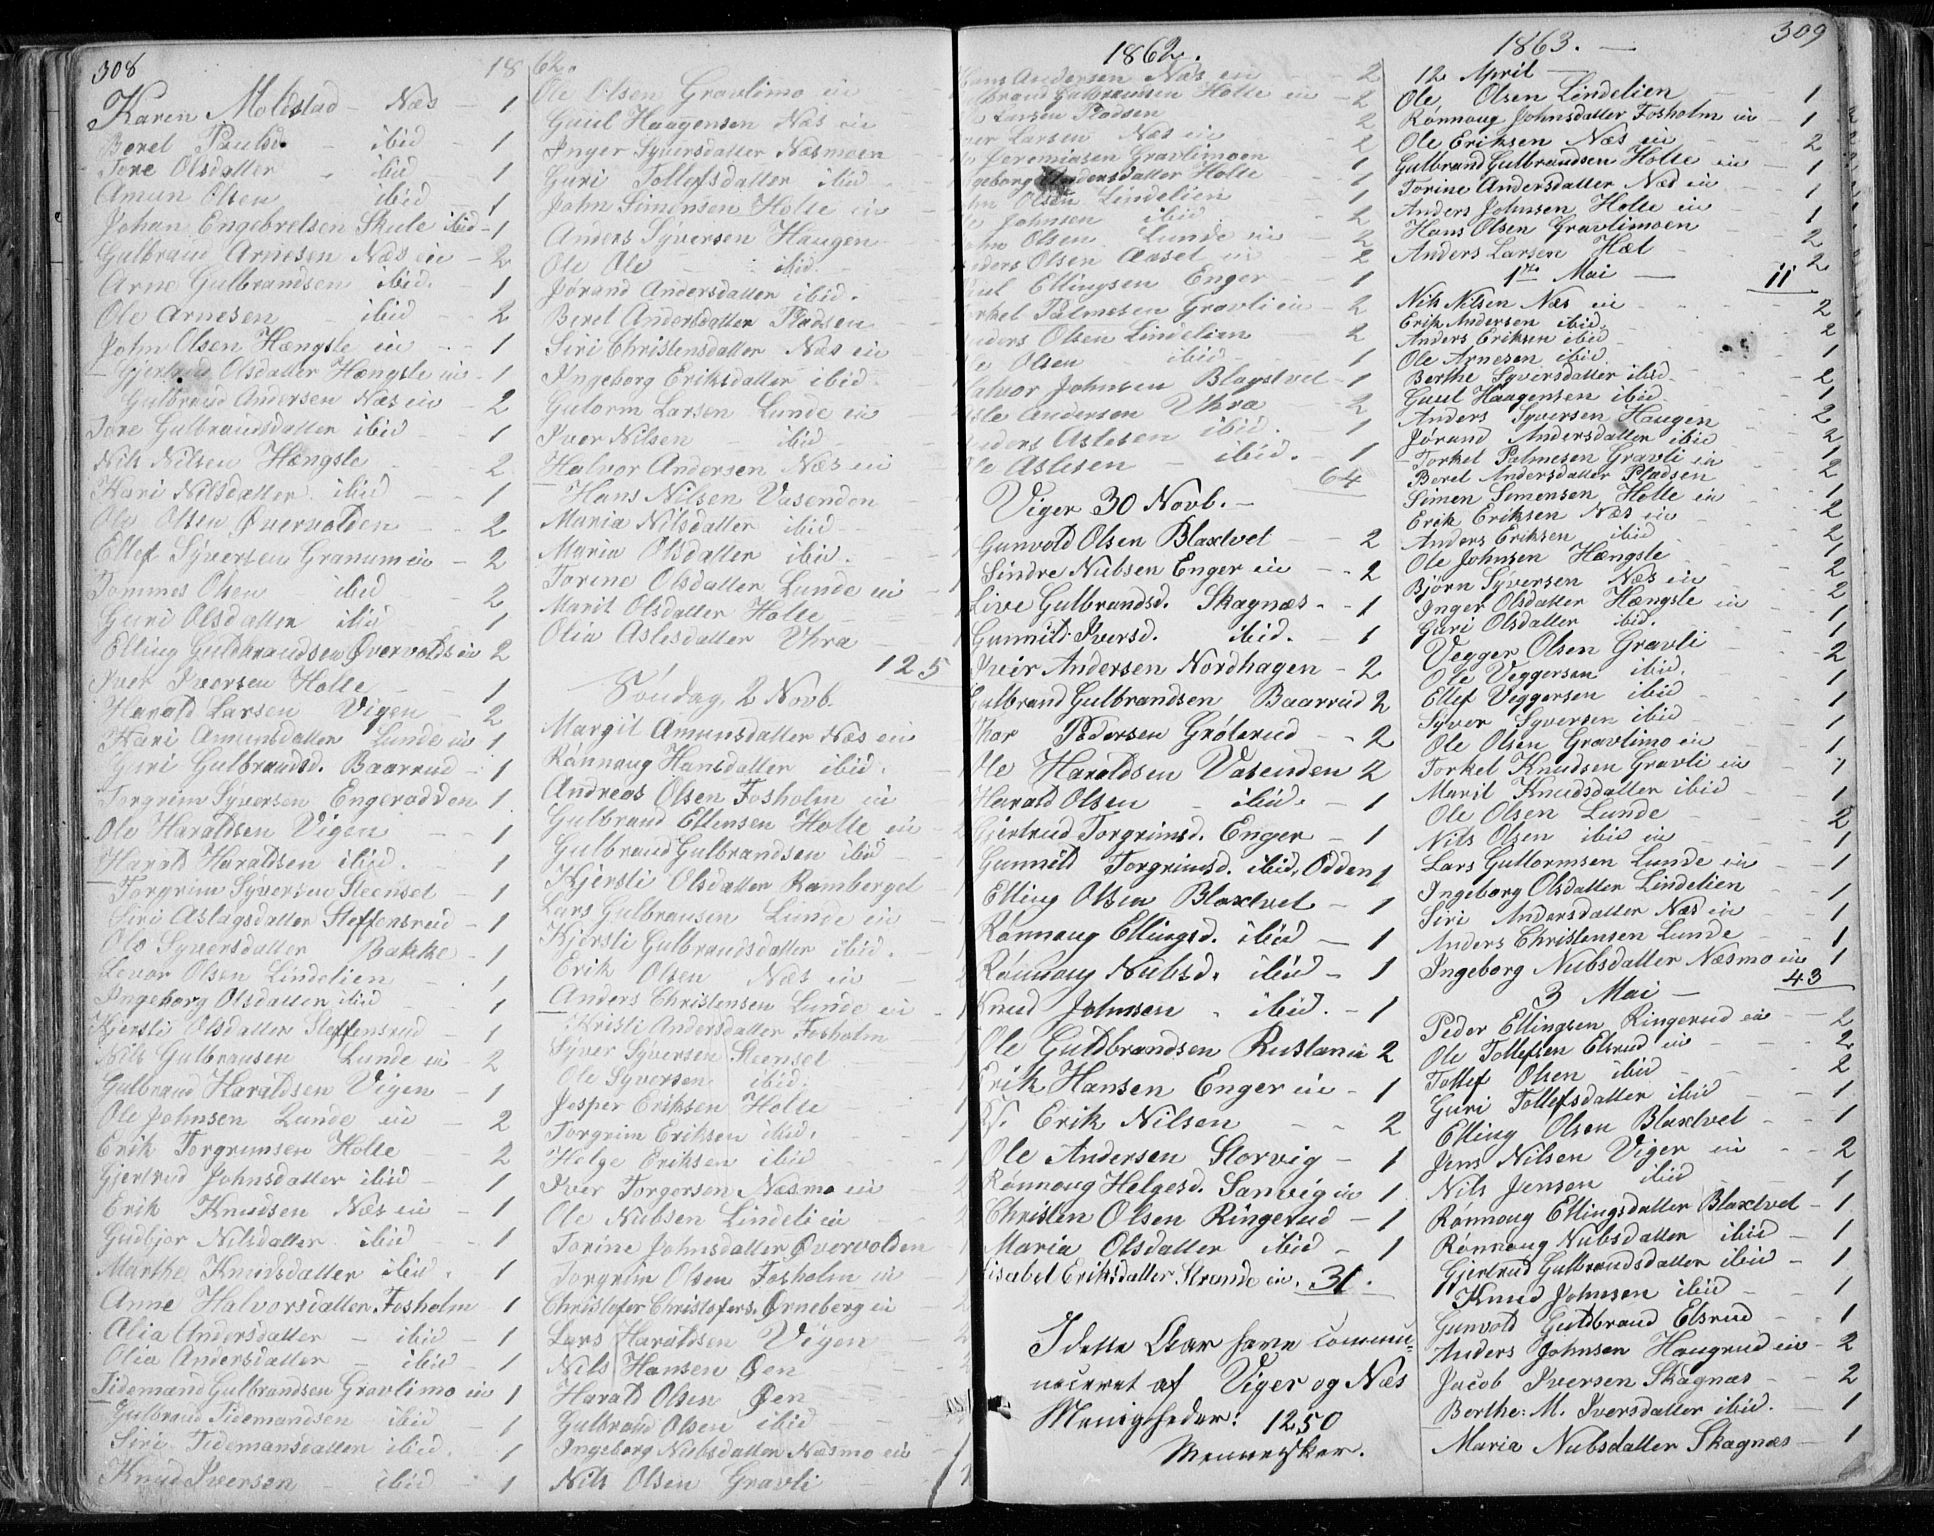 308
1862.
Karen Moldstad - Næs - 1
Beret Paulsd. - ibid - 1
Tore Olsdatter - ibid - 1
Amun Olsen ibid - 1
Johan Engebretsen Skule ibid - 1
Gulbrand Arnesen Næs ein - 2
Arne Gulbrandsen ibid. - 1
Ole Arnesen ibid - 2
John Olsen Hængsle ein - 1
Gjertrud Olsdatter Hængsle ein - 1
Gulbrand Andersen Næs ein - 2
Tore Gulbrandsdatter ibid - 1
Nils Nilsen Hængsle 2
Kari Nilsdatter ibid - 1
Ole Olsen Øvervolden - 2
Ellef Syversen Granum ein - 2
Tommes Olsen ibid - 2
Guri Olsdatter ibid - 1
Elling Guldbrandsen Øvervolds ein 2
Iver Iversen Holte - 1
Harald Larsen Vigen - 2
Kari Amunsdatter Lunde ein 1
Guri Gulbrandsd. Baarrud - 1
Torgrim Syversen Engerodden 1
Ole Haraldsen Vigen - 1
Harald Haraldsen ibid. - 1
Torgrim Syversen Steenset - 1
Siri Aslagsdatter Steffensrud - 1
Ole Syversdatter Bakke - 1
Levor Olsen Lindelien - 1
Ingeborg Olsdatter ibid - 1
Kjersti Olsdatter Steffensrud - 1
Nils Gulbransen Lunde ein 2
Gulbrand Haraldsen Vigen - 1
Ole Johnsen Lunde ein - 2
Erik Torgrimsen Holte - 2
Gjertrud Johnsdatter ibid - 1
Erik Knudsen Næs ein - 1
Gudbjor Nilsdatter ibid - 1
Marthe Knudsdatter ibid. 1
Anne Halvorsdatter Fosholm - 1
Alia Andersdatter - ibid - 1
Olia Andersdatter - ibid - 1
Tidemand Gulbrandsen Gravlimo ein 1
Gulbrand Tidemandsen ibid - 1
Siri Tidemansdatter ibid. 1
Knud Iversen - ibid - 1
Ole Olsen Gravlimo ein
Guul Haagensen Næs ein
Inger Syversdatter Næsmoen
Guri Tollefsdatter ibid
John Simensen Holte ein
Anders Syversen Haugen
Ole Ole ibid.
Jørand Andersdatter ibid.
Beret Andersdatter Pladsen
Siri Christensdatter Næs ein
Ingeborg Eriksdatter ibid.
Gutorm Larsen Lunde ein
Iver Nilsen - ibid
Halvor Andersen Næs ein
Hans Nilsen Vasenden
Maria Nilsdatter ibid
Maria Olsdatter ibid.
Torine Olsdatter Lunde ein
Marit Olsdatter Holte
Olia Aslesdatter Uhra
125
Søndag, 2 Novb.
Margit Amunsdatter Næs ein
Rønnaug Hansdatter ibid.
Andreas Olsen Fosholm ein
Gulbrand Ellensen Holte ein
Gulbrand Gulbrandsen ibid
Kjersti Olsdatter Ramberget
Lars Gulbransen Lunde ein
Kjersti Gulbrandsdatter ibid.
Erik Olsen Næs ein
Anders Christensen Lunde ein
Kristi Andersdatter Fosholm
Syver Syversen Steenset
Ole Syversen ibid.
Jesper Eriksen Holte
Torgrim Eriksen ibid.
Helge Eriksen ibid
Iver Torgersen Næsmo ein
Ole Nubsen Lindeli ein
Torine Johnsdatter Øvervolden
Torgrim Olsen Fosholm ein
Christofer Christofers. Ørneberg ein
Lars Haraldsen Vigen
Nils Hansen Øen
Harald Olsen Øen
Gulbrand Olsen ibid
Ingeborg Nubsdatter Næsmo ein
Nils Olsen Gravli
1862.
Andersen Næs ein 2
Gulbransen Holte ein - 2
Larsen Pladsen 2
Larsen Næs ein 2
Jeremiasen Gravlimoen 1
Andersdatter Holte 1
Olsen Lindelien 1
Johnsen ibid 2
Olsen Lunde ein 2
Olsen Aaset ein 2
Ellingsen Enger - 1
Palmesen Gravli ein - 2
Olsen Lindelien 2
Olsen ibid 1
Halvor Johnsen Blaxtvet - 1
Andersen Uhra - 2
Aslesen ibid. - 1
Aslesen - ibid. - 1
64
Viger 30 Novb. -
Gunvold Olsen Blaxtvet - 2
Sindre Nubsen Enger ein - 2
Live Gulbrandsd. Skagnæs - 1
Gunnild Iversd. ibid. - 1
Iveir Andersen Nordhagen - 2
Gulbrand Gulbrandsen Baarrud 2
Ihar Pedersen Grøterud - 2
Ole Haraldsen Vasenden 2
Harald Olsen - ibid. - 1
Gjertrud Torgrimsd. Enger - 1
Gunnild Torgrimsd. ibid, Odden 1
Elling Olsen Blaxtvet - 1
Rønnaug Ellingsd. ibid - 1
Rønnaug Nubsd. ibid - 1
Knud Johnsen ibid. - 1
Ole Guldbrandsen Rustan ein 2
Erik Hansen Enger ein - 1
Ks. Erik Nilsen - 2
Ole Andersen Storvig - 1
Rønnaug Helgesd. Sanvig ein 1
Christen Olsen Ringerud - 1
Maria Olsdatter ibid - 1
Lisabet Eriksdatter Strande ein. 31.
I dette Aar have commu-
niceret af Viger og Næs
Menigheder: 1250
Mennesker.
1863. -
309
12 April -
Ole Olsen Lindelien - 1
Rønnaug Johnsdatter Fosholm ein - 1
Ole Eriksen Næs ein - 2
Gulbrand Gulbrandsen Holte ein - 1
Torine Andersdatter Næs ein - 1
Anders Johnsen Holte ein 1
Hans Olsen Gravlimoen 2
Anders Larsen Hæl 2
11
1ste Mai -
Nils Nilsen Næs ein 2
Erik Andersen ibid. 2
Anders Eriksen ibid 1
Ole Arnesen ibid. 2
Berthe Syversdatter ibid. 1
Guul Haagensen ibid. 2
Anders Syversen Haugen 2
Jørand Andersdatter ibid 1
Torkel Palmesen Gravli ein 2
Beret Andersdatter Pladsen 1
Simen Simensen Holte ein 2
Erik Eriksen Næs ein 2
Anders Eriksen ibid 1
Ole Johnsen Hængsle 2
Bjørn Syversen Næs ein 2
Inger Olsdatter Hængsle ein - 1
Guri Olsdatter ibid. 1
Vegger Olsen Gravli 2
Ole Veggersen ibid. 1
Ellef Veggersen ibid 1
Syver Syversen ibid 1
Ole Olsen Gravlimo ein 1
Torkel Knudsen Gravli ein - 1
Marit Knudsdatter ibid 1
Ole Olsen Lunde 2
Nils Olsen ibid ein 1
Lars Guttormsen Lunde ein 1
Ingeborg Olsdatter Lindelien 1
Siri Andersdatter Næs ein 1
Anders Christensen Lunde - 1
Ingeborg Nubsdatter Næsmo ein 1
43
3 Mai -
Peder Ellingsen Ringerud ein - 2
Ole Tollefsen Elsrud ein 2
Tollef Olsen ibid 2
Guri Tollefsdatter ibid - 1
Elling Olsen Blaxtvet - 1
Jens Nilsen Viger ein - 2
Nils Jensen ibid 1
Rønnaug Ellingsdatter Blaxtvet - 1
Rønnaug Nubsdatter ibid - 1
Gjertrud Gulbrandsdatter ibid - 1
Knud Johnsen ibid - 1
Gunvold Guldbrand Elsrud - 1
Anders Johnsen Haugrud ein - 2
Jacob Iversen Skagnæs - 2
Berthe. M. Iversdatter ibid. - 1
Maria Nubsdatter Skagnæs - 1